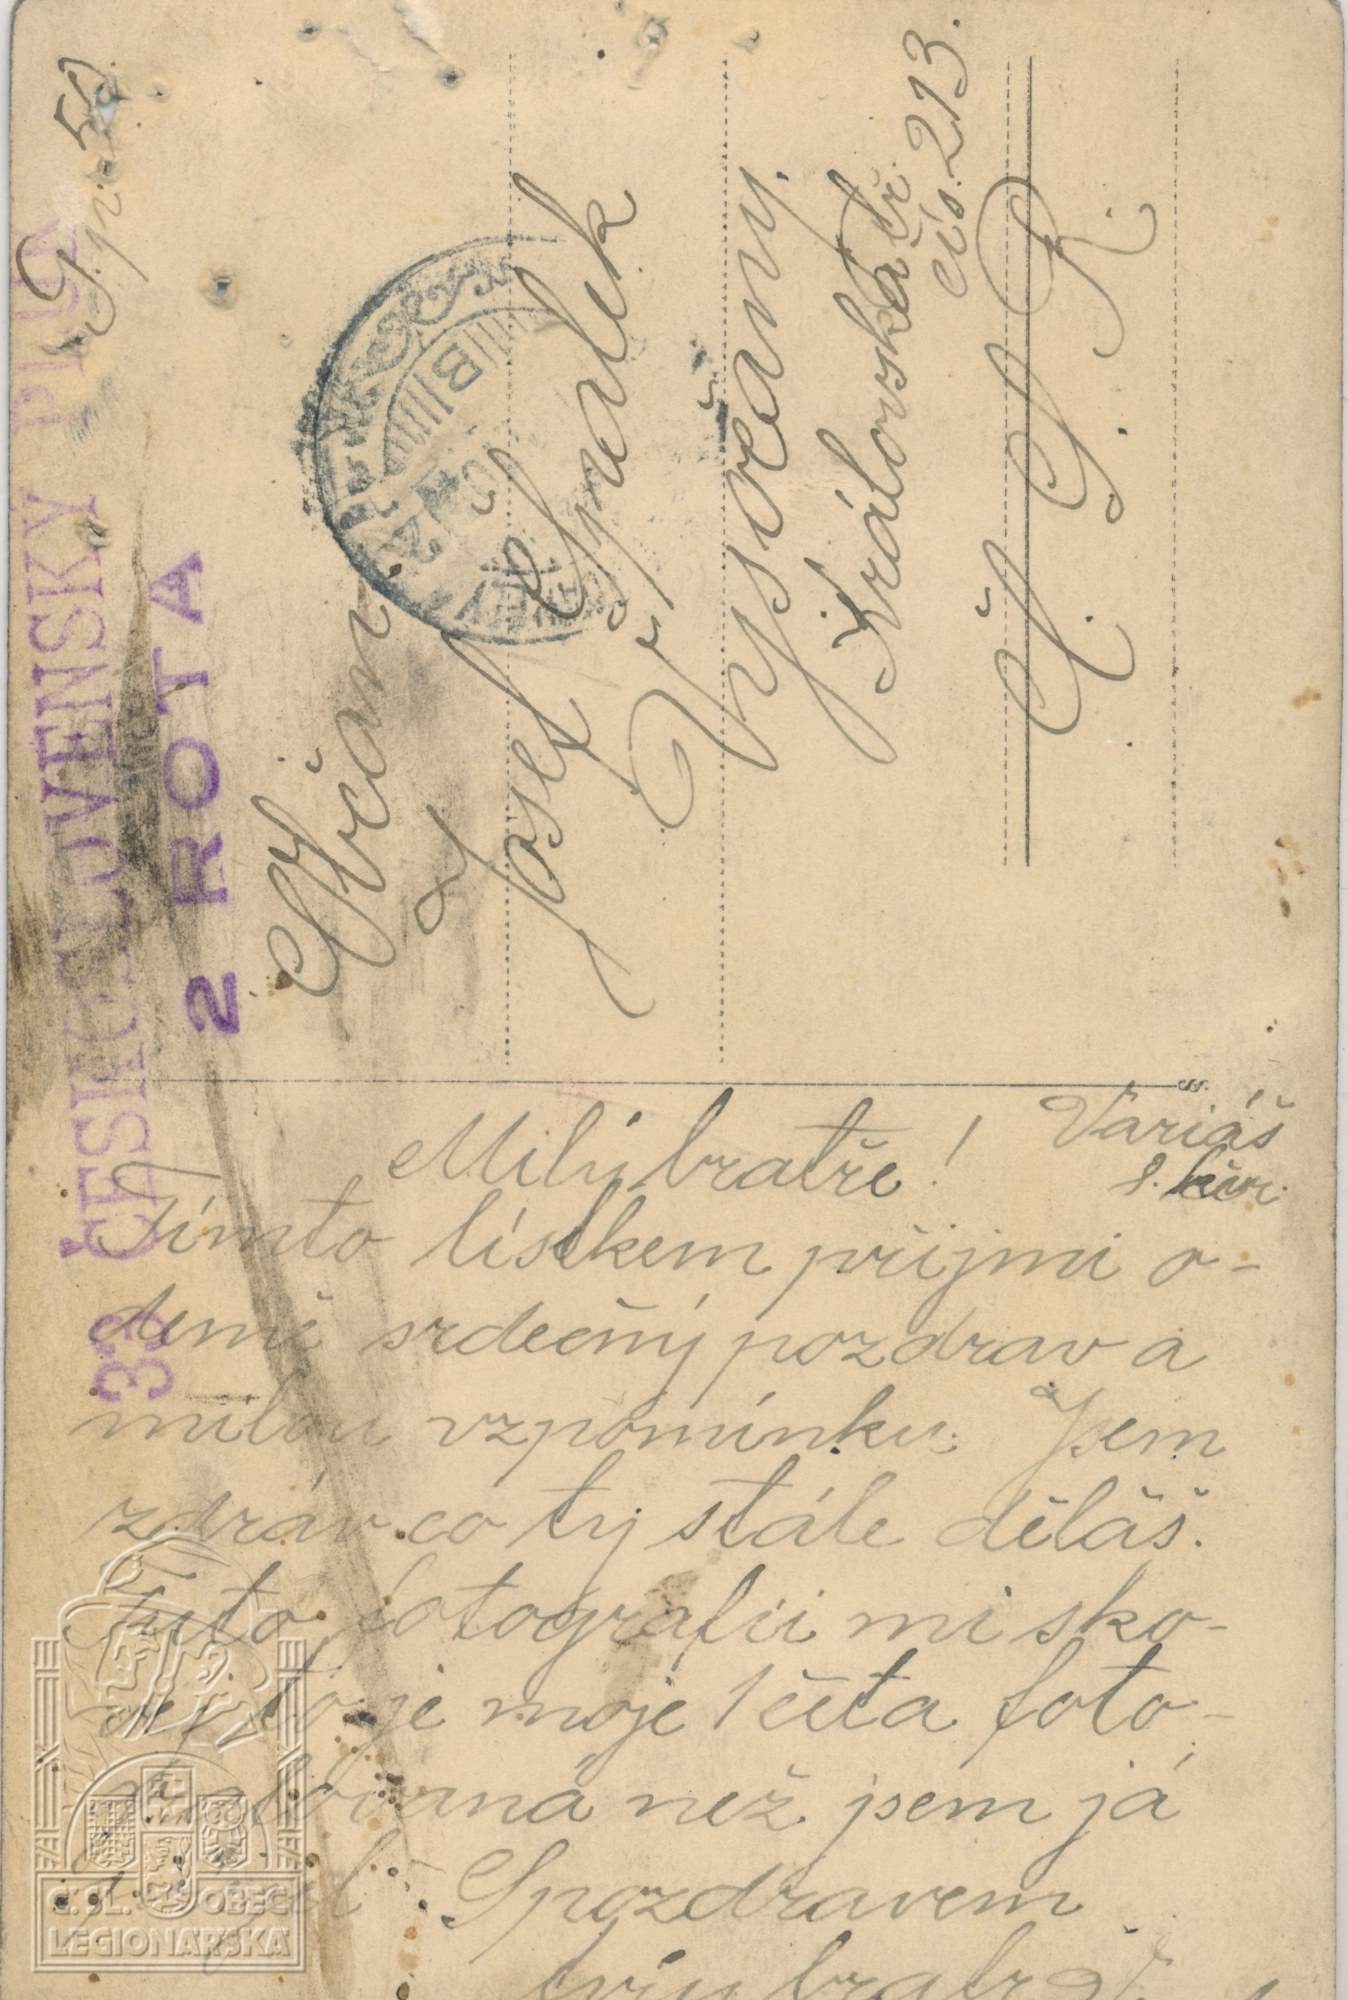 33 ČESKOSLOVENSKÝ PLUK
2 ROTA
Občan
Josef Špalek
Vysočany.
Královská tř.
čís. 213.
Č. S. R.
B
Variáš
8. květ.
Milý bratře!
Tímto lístkem přijmi o-
demě srdečný pozdrav a
milou vzpomínku. Jsem
zdráv co ty stále děláš.
Tuto fotografii mi sko-
vej to je moje 1 četa foto-
grafovaná než jsem já
S pozdravem
tvůj bratr
Č. SL. OBEC
LEGIONÁŘSKÁ